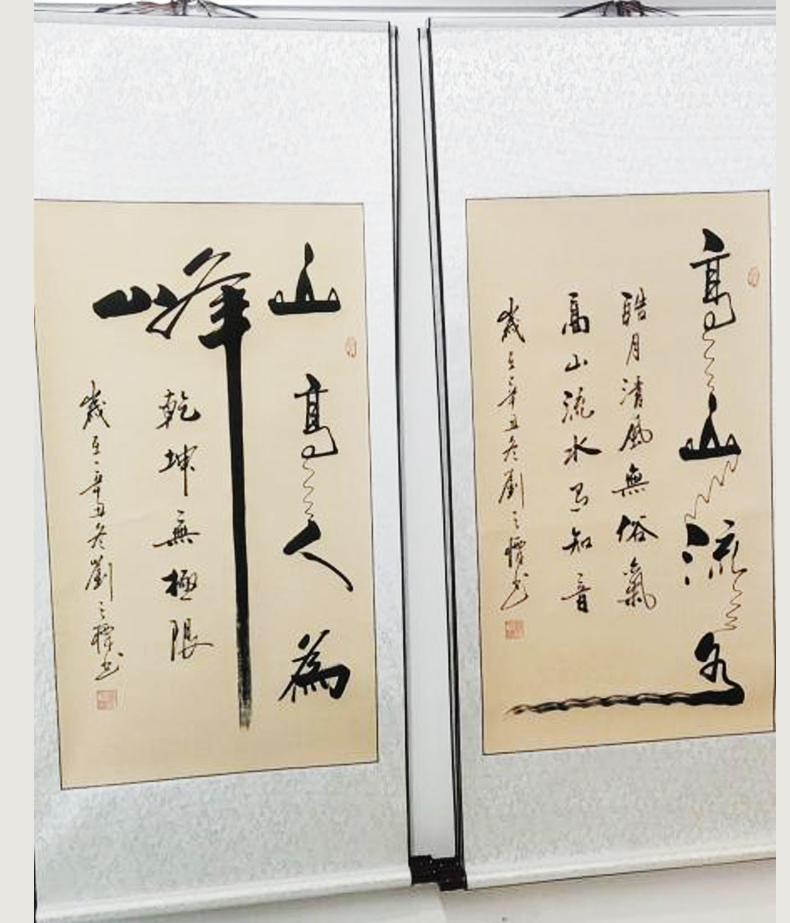 高山流水
皓月清風無俗氣
高山流水有知音
歲在辛丑冬劉之標書
山高人為
峰
乾坤無極限
歲在辛丑冬劉之標書